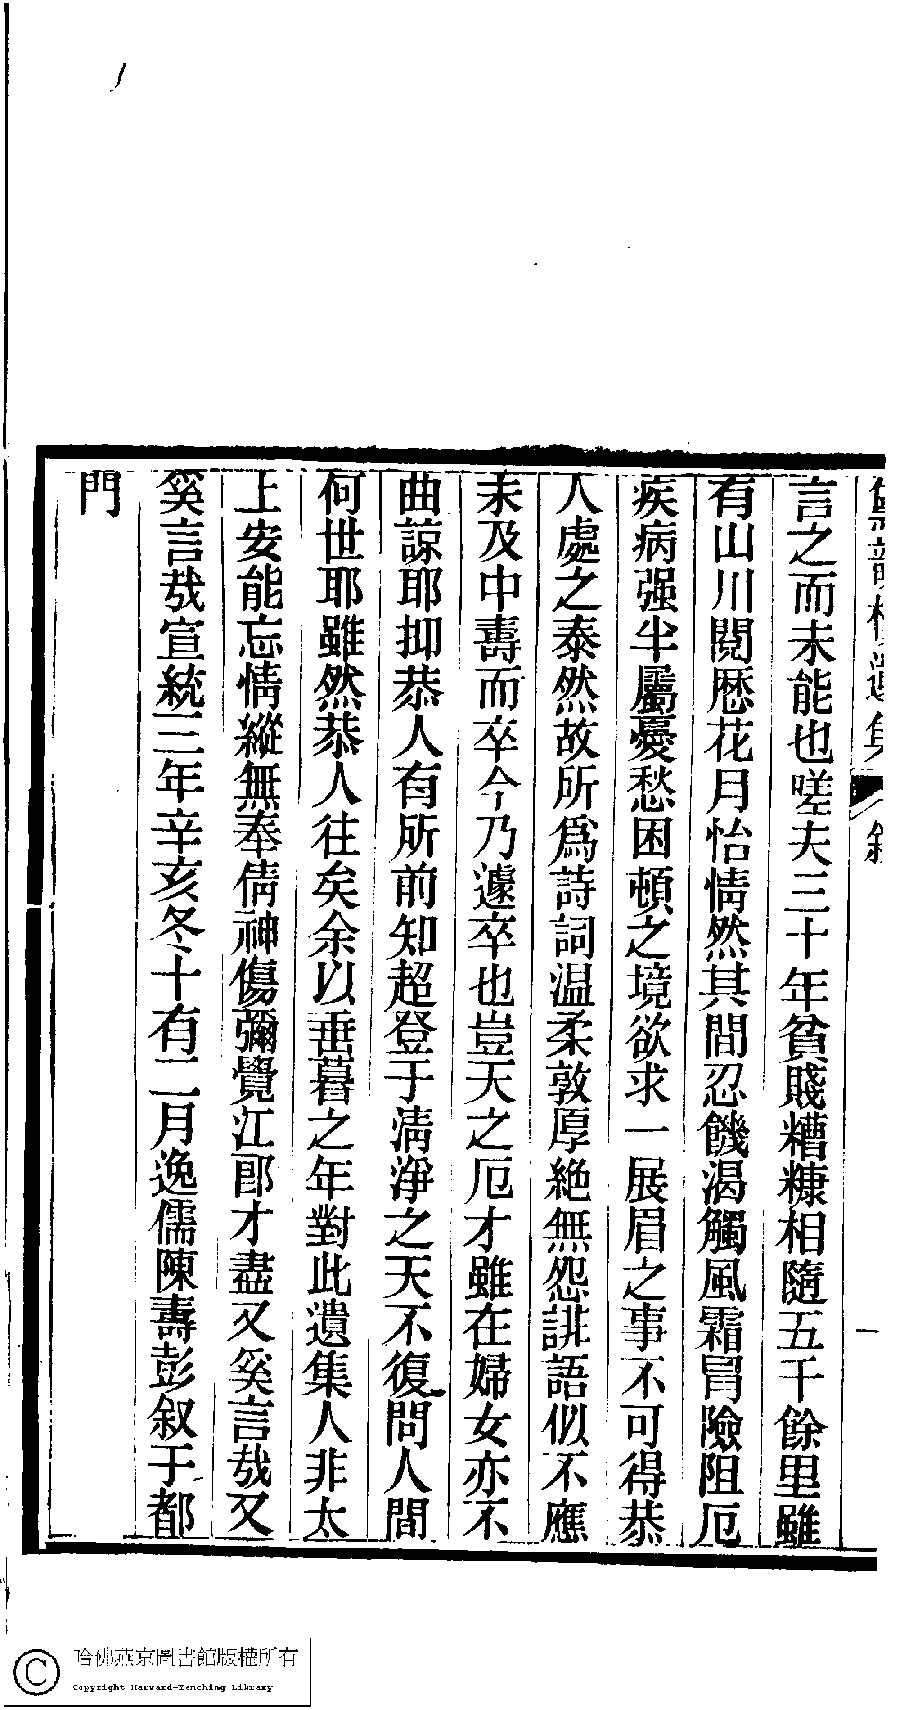 遺集 敘 一
言之而未能也嗟夫三十年貧賤糟糠相隨五千餘里雖
有山川閱歷花月怡情然其間忍饑渴觸風霜冒險阻厄
疾病强半屬憂愁困頓之境欲求一展眉之事不可得恭
人處之泰然故所爲詩詞温柔敦厚絶無怨誹語似不應
未及中壽而卒今乃遽卒也豈天之厄才雖在婦女亦不
曲諒耶抑恭人有所前知超登于淸淨之天不復問人間
何世耶雖然恭人往矣余以垂暮之年對此遺集人非太
上安能忘情縱無奉倩神傷彌覺江郎才盡又奚言哉又
奚言哉宣統三年辛亥冬十有二月逸儒陳壽彭叙于都
門
哈佛燕京圖書館版權所有
Copyright Harvard-Yenching Library